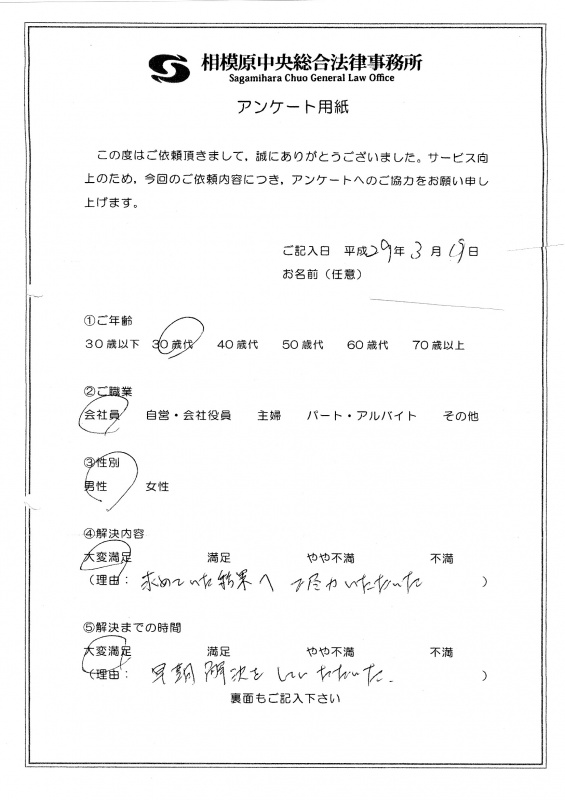 相模原中央総合法律事務所
Sagamihara Chuo General Law Office
アンケート用紙
この度はご依頼頂きまして，誠にありがとうございました。サービス向
上のため，今回のご依頼内容につき，アンケートへのご協力をお願い申し
上げます。
ご記入日 平成29年3月19日
お名前（任意）
①ご年齢
30歳以下 30歳代 40歳代 50歳代 60歳代 70歳以上
②ご職業
会社員 自営・会社役員 主婦 パート・アルバイト その他
③性別
男性 女性
④解決内容
大変満足 満足 やや不満 不満
（理由： 求めていた結果へ ご尽力いただいた ）
⑤解決までの時間
大変満足 満足 やや不満 不満
（理由： 早期解決をしていただいた. ）
裏面もご記入下さい